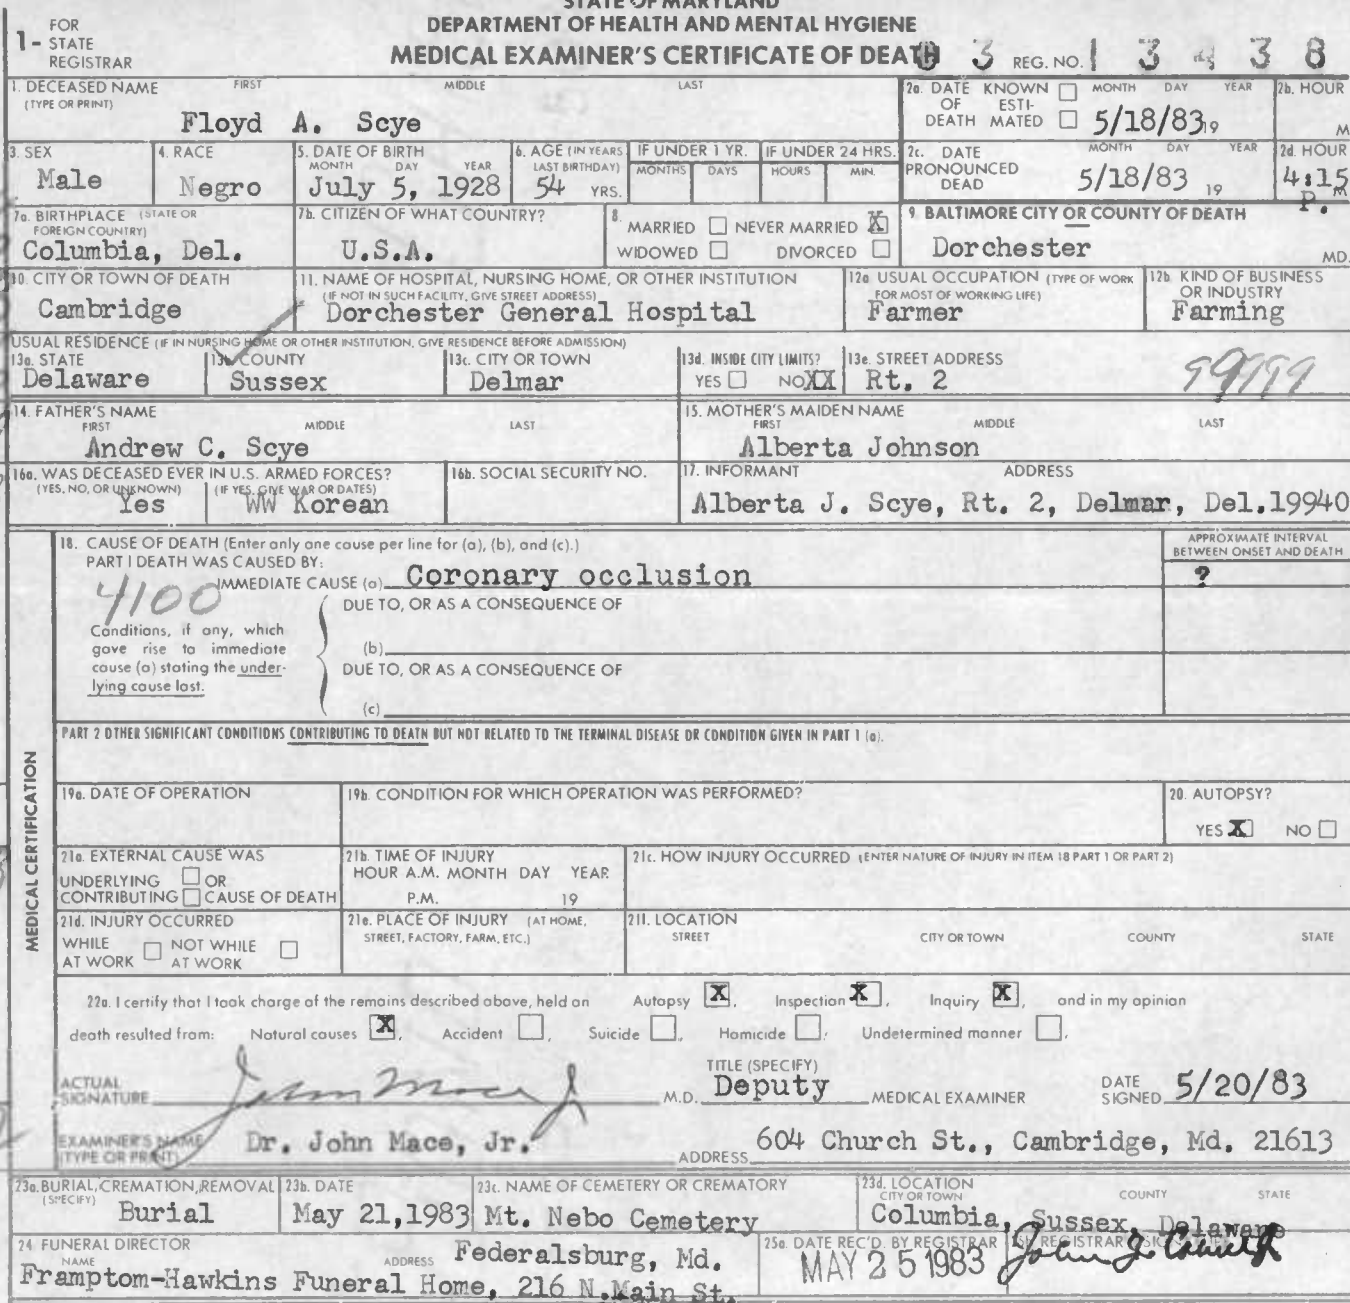 STATE OF MARYLAND
DEPARTMENT OF HEALTH AND MENTAL HYGIENE
MEDICAL EXAMINER'S CERTIFICATE OF DEATH
1- FOR STATE REGISTRAR
3 REG. NO. 1 3 4 3 8
1. DECEASED NAME FIRST MIDDLE LAST
(TYPE OR PRINT)
Floyd A. Scye
2a. DATE KNOWN ☐ MONTH DAY YEAR
OF ESTI-
DEATH MATED ☐ 5/18/83 19
2b. HOUR
M
3. SEX
Male
4. RACE
Negro
5. DATE OF BIRTH
MONTH DAY YEAR
July 5, 1928
6. AGE (IN YEARS
LAST BIRTHDAY)
54 YRS.
IF UNDER 1 YR.
MONTHS DAYS
IF UNDER 24 HRS.
HOURS MIN.
2c. DATE MONTH DAY YEAR
PRONOUNCED
DEAD 5/18/83 19
2d. HOUR
4:15 M
P.
7a. BIRTHPLACE (STATE OR
FOREIGN COUNTRY)
Columbia, Del.
7b. CITIZEN OF WHAT COUNTRY?
U.S.A.
8.
MARRIED ☐ NEVER MARRIED ☒
WIDOWED ☐ DIVORCED ☐
9. BALTIMORE CITY OR COUNTY OF DEATH
Dorchester MD.
10. CITY OR TOWN OF DEATH
Cambridge
11. NAME OF HOSPITAL, NURSING HOME, OR OTHER INSTITUTION
(IF NOT IN SUCH FACILITY, GIVE STREET ADDRESS)
Dorchester General Hospital
12a. USUAL OCCUPATION (TYPE OF WORK
FOR MOST OF WORKING LIFE)
Farmer
12b. KIND OF BUSINESS
OR INDUSTRY
Farming
USUAL RESIDENCE (IF IN NURSING HOME OR OTHER INSTITUTION, GIVE RESIDENCE BEFORE ADMISSION)
13a. STATE
Delaware
13b. COUNTY
Sussex
13c. CITY OR TOWN
Delmar
13d. INSIDE CITY LIMITS?
YES ☐ NO XX
13e. STREET ADDRESS
Rt. 2
99999
14. FATHER'S NAME
FIRST MIDDLE LAST
Andrew C. Scye
15. MOTHER'S MAIDEN NAME
FIRST MIDDLE LAST
Alberta Johnson
16a. WAS DECEASED EVER IN U.S. ARMED FORCES?
(YES, NO, OR UNKNOWN) (IF YES, GIVE WAR OR DATES)
Yes WW Korean
16b. SOCIAL SECURITY NO.
17. INFORMANT ADDRESS
Alberta J. Scye, Rt. 2, Delmar, Del.19940
MEDICAL CERTIFICATION
18. CAUSE OF DEATH (Enter only one cause per line for (a), (b), and (c).)
PART I DEATH WAS CAUSED BY:
APPROXIMATE INTERVAL
BETWEEN ONSET AND DEATH
IMMEDIATE CAUSE (a) Coronary occlusion ?
4100
DUE TO, OR AS A CONSEQUENCE OF
Conditions, if any, which
gave rise to immediate
cause (a) stating the under-
lying cause last.
(b)
DUE TO, OR AS A CONSEQUENCE OF
(c)
PART 2 OTHER SIGNIFICANT CONDITIONS CONTRIBUTING TO DEATH BUT NOT RELATED TO THE TERMINAL DISEASE OR CONDITION GIVEN IN PART 1 (a).
19a. DATE OF OPERATION
19b. CONDITION FOR WHICH OPERATION WAS PERFORMED?
20. AUTOPSY?
YES ☒ NO ☐
21a. EXTERNAL CAUSE WAS
UNDERLYING ☐ OR
CONTRIBUTING ☐ CAUSE OF DEATH
21b. TIME OF INJURY
HOUR A.M. MONTH DAY YEAR
P.M. 19
21c. HOW INJURY OCCURRED (ENTER NATURE OF INJURY IN ITEM 18 PART 1 OR PART 2)
21d. INJURY OCCURRED
WHILE AT WORK ☐ NOT WHILE AT WORK ☐
21e. PLACE OF INJURY (AT HOME,
STREET, FACTORY, FARM, ETC.)
21f. LOCATION
STREET CITY OR TOWN COUNTY STATE
22a. I certify that I took charge of the remains described above, held an Autopsy ☒, Inspection ☒, Inquiry ☒, and in my opinion
death resulted from: Natural causes ☒, Accident ☐, Suicide ☐, Homicide ☐, Undetermined manner ☐.
ACTUAL
SIGNATURE John Mace Jr M.D.
TITLE (SPECIFY)
Deputy MEDICAL EXAMINER
DATE
SIGNED 5/20/83
EXAMINER'S NAME
(TYPE OR PRINT) Dr. John Mace, Jr.
ADDRESS 604 Church St., Cambridge, Md. 21613
23a. BURIAL, CREMATION, REMOVAL
(SPECIFY)
Burial
23b. DATE
May 21,1983
23c. NAME OF CEMETERY OR CREMATORY
Mt. Nebo Cemetery
23d. LOCATION
CITY OR TOWN COUNTY STATE
Columbia, Sussex, Delaware
24. FUNERAL DIRECTOR
NAME ADDRESS Federalsburg, Md.
Framptom-Hawkins Funeral Home, 216 N.Main St.
25a. DATE REC'D. BY REGISTRAR
MAY 25 1983
REGISTRAR
John J.